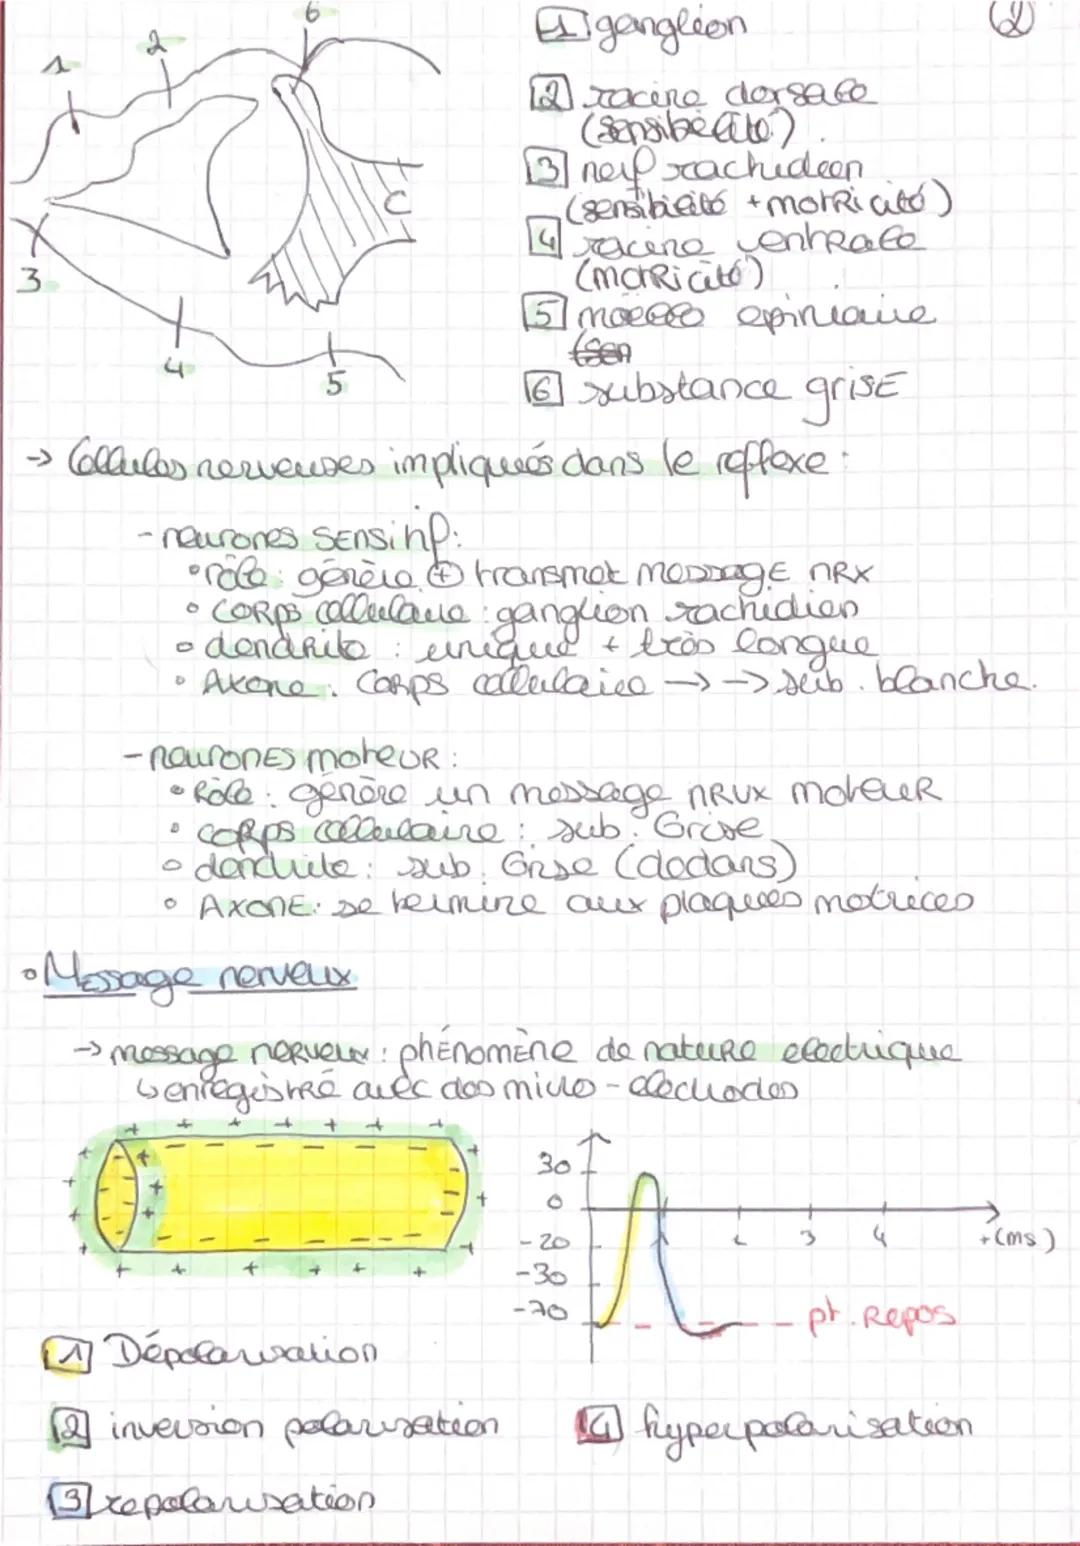 1
2
6
C
3
4
5
(2)
1 ganglion
2 racine dorsale
(sensibilité).
3 nerf rachidien
(sensibilité + motricité)
4 racine ventrale
(motricité)
5 moelle épiniaire
(sen
6 substance grise
-> Cellules nerveuses impliqués dans le reflexe :
- neurones sensitif:
• rôle : génère ⊕ transmet message nrx
• corps cellulaire : ganglion rachidien
• dendrite : unique + très longue
• Axone : Corps cellulaire -> -> sub. blanche.
- neurones moteur :
• Rôle : génère un message nrux moteur
• corps cellulaire : sub. Grise
• dendrite : sub. Grise (dedans)
• Axone : se termine aux plaques motrices
• Message nerveux
-> message nerveux : phénomène de nature electrique
↳ enregistré avec des micro-electrodes
30
0
-20
-30
-70
1 2 3 4 t(ms)
pt. Repos
1 Dépolarisation
2 inversion polarisation
4 hyperpolarisation
3 repolarisation